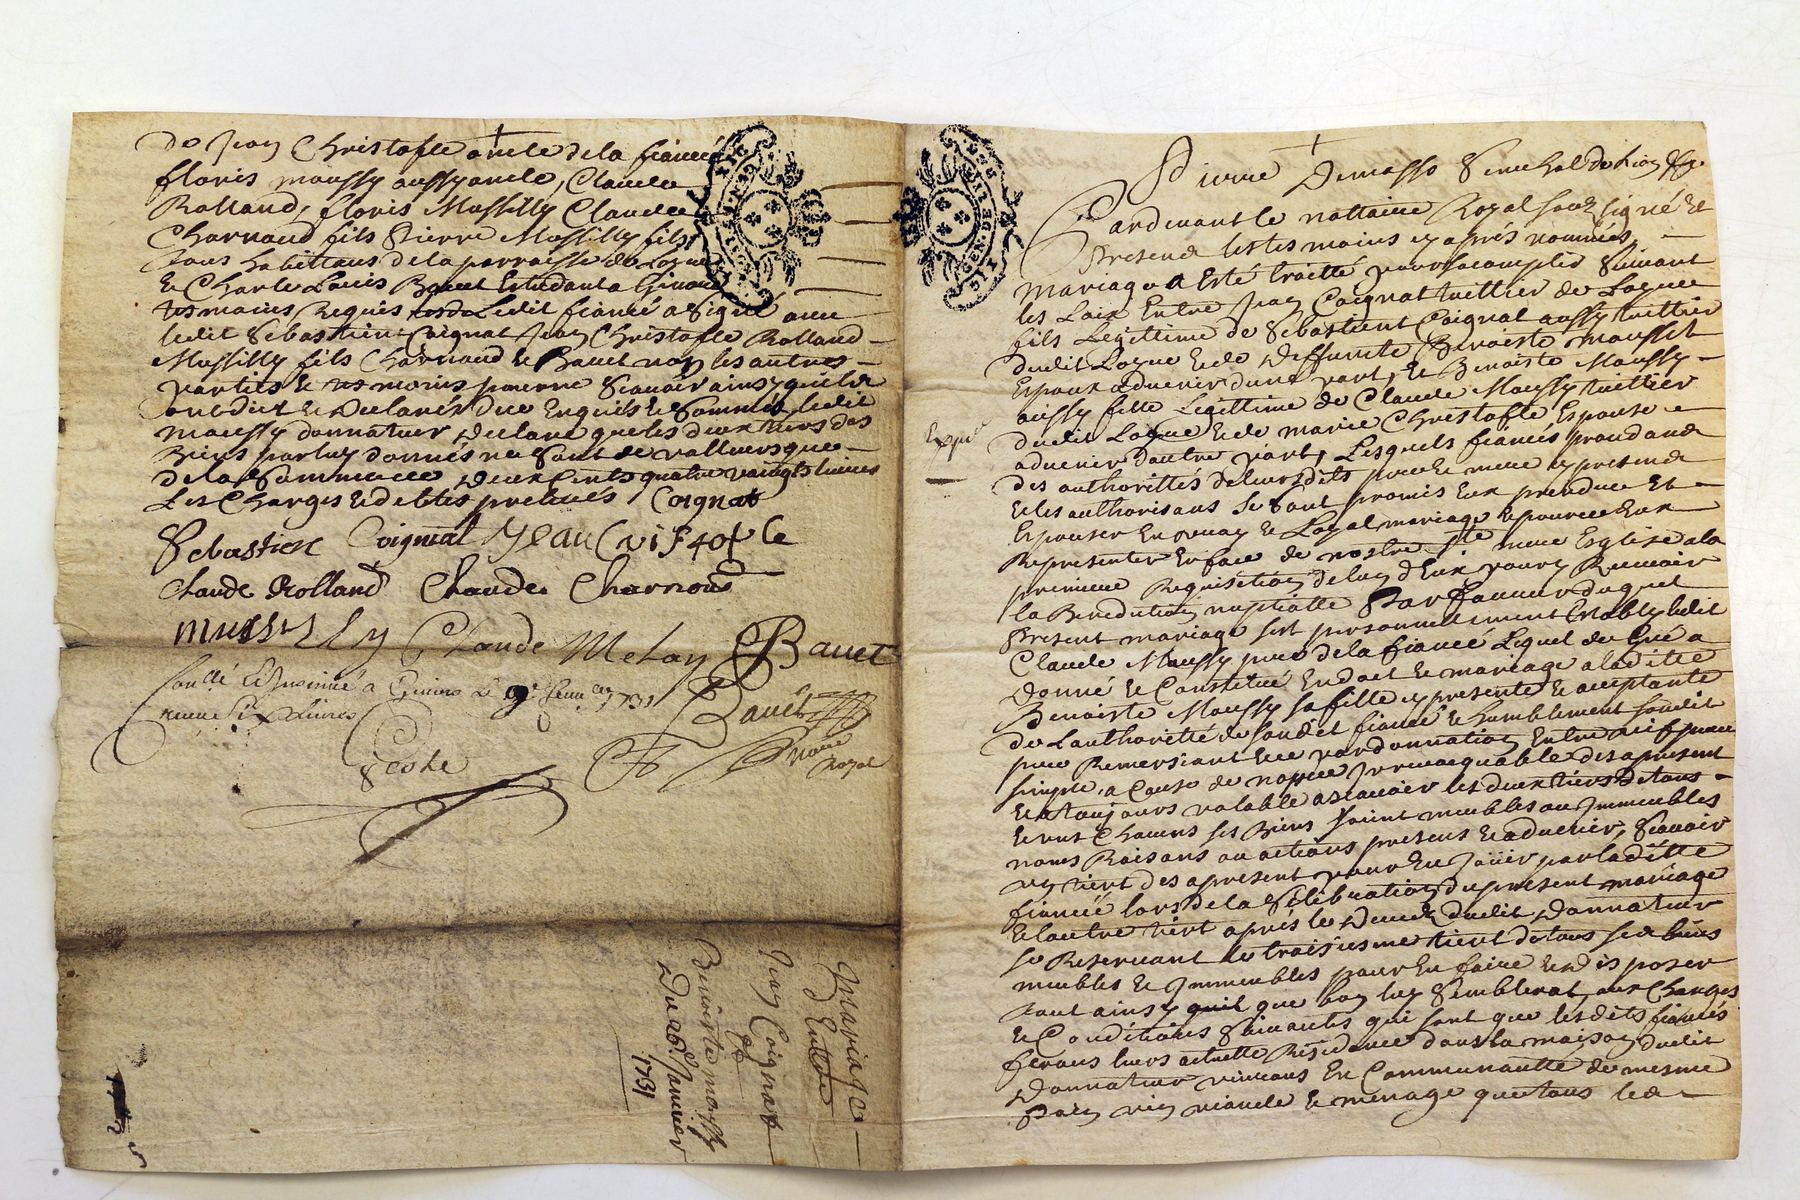 De Jean Christofle oncle de la fiancée
floris moussy aussy oncle, Claude
Rolland, floris Mussilly Claude
Charnaud fils Pierre Mussilly fils
tous habittans de la parroisse de Lozne
Et Charle Louis Bauet Estudiant a
tesmoins Requis Ledit fiancé a signé auec
ledit Sebastient Coignat Jean Christofle Rolland
Mussilly fils Charnaud et Bauet non les autres
parties et tesmoins pour ne scauoir ainsy quil
ont dict et Declarés de ce Enquis et Sommés, ledit
Moussy donnateur declare que les deux tiers des
Biens par luy donnés ne sont de valleurs que
de la Somme de deux Cents quatre vaingts liures
Les Charges et debtes prelevés Coignat
Sebastien Coignat Jean Cristofle
Claude Rolland Claude Charnoud
mussilly Claude Melay Bauet
Conllé Et Insinué a le 9e 1731
Bauet
Nore
Royal
Mariage
Entre
Jean Coignat
et
Benoiste moussy
Du 26e Januier
1731
Pierre Demasso Senechal de Lion
Pardeuant le nottaire Royal souz signé Et
Presens les tesmoins cy aprés nommés
mariage a Esté traitté et accomplis Suiuant
les Loix Entre Jean Coignat tuillier de Lozne
fils Legittime de Sebastient Coignat aussy tuillier
dudit Lozne et de deffunte Benoiste mousset
Espoux aduenir dune part, Et Benoiste Moussy
aussy fille Legittime de Claude Moussy tuillier
dudit Lozne et de marie Christofle Espouse
aduenir dautre part, Lesquels fiancés proceddans
des authorittés de leurs dits pere et mere cy presens
et les authorisans Se Sont promis Eux prendre Et
Espouser En vray et Loyal mariage et pour ce Eux
Representer En face de nostre Ste mere Esglise a la
premiere Requisition de lun deux pour y Receuoir
la Benediction nuptialle Par faueur duquel
Present mariage sest personnellement Estably ledit
Claude Moussy pere de la fiancée Lequel de Gré a
donné et Constitué En dot et mariage a ladite
Benoiste Moussy sa fille cy presente et acceptante
de Lauthorité de sondit fiancé et humblement sondit
pere Remersiant Et ce par donnation Entre vifs pure
simple, a Cause de nopces Irreuocquable des apresent
Et a toujours valable ascauoir les deux tiers de tous
et uns Chacuns ses Biens soient meubles ou Immeubles
noms Raisons ou actions presens et aduenir, Scauoir
un tiert des apresent pour En Joüir par ladite
fiancée lors de la Celebration du present mariage
Et lautre tiert aprés le deceds dudit donnateur
se Reseruant le troisiesme tiert de tous ses biens
meubles et Immeubles pour En faire Et disposer
tout ainsy que bon luy Semblerat, aux Charges
et Conditions Suiuantes qui sont que lesdits fiancés
ferons leurs actuelle Residence dans la maison dudit
donnateur viurons En Communautté de mesme
Pain vin viande et menage que tous les